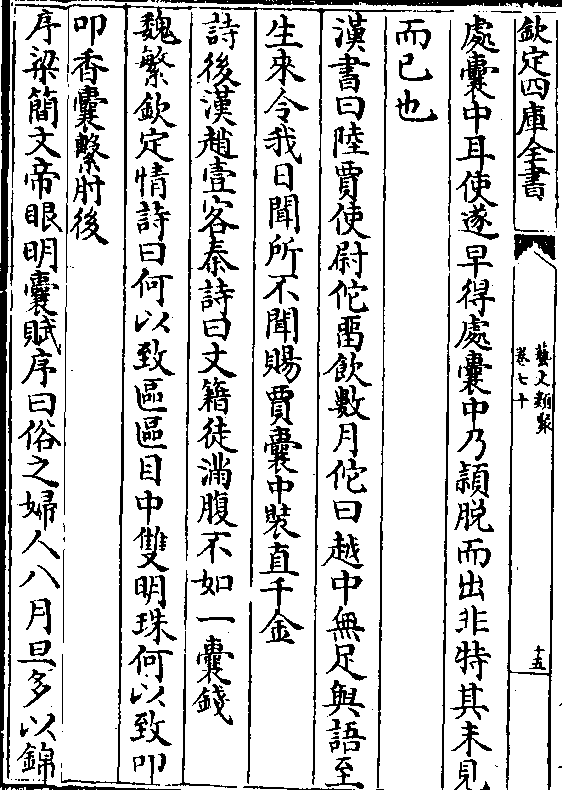 欽定四庫全書
藝文類聚
卷七十
十五
處囊中耳使遂早得處囊中乃穎脱而出非特其末見
而已也
漢書曰陸賈使尉佗畱飲數月佗曰越中無足與語至
生來令我日聞所不聞賜賈囊中裝直千金
詩後漢趙壹客秦詩曰文籍徒滿腹不如一囊錢
魏繁欽定情詩曰何以致區區目中雙明珠何以致叩
叩香囊繫肘後
序梁簡文帝眼明囊賦序曰俗之婦人八月旦多以錦